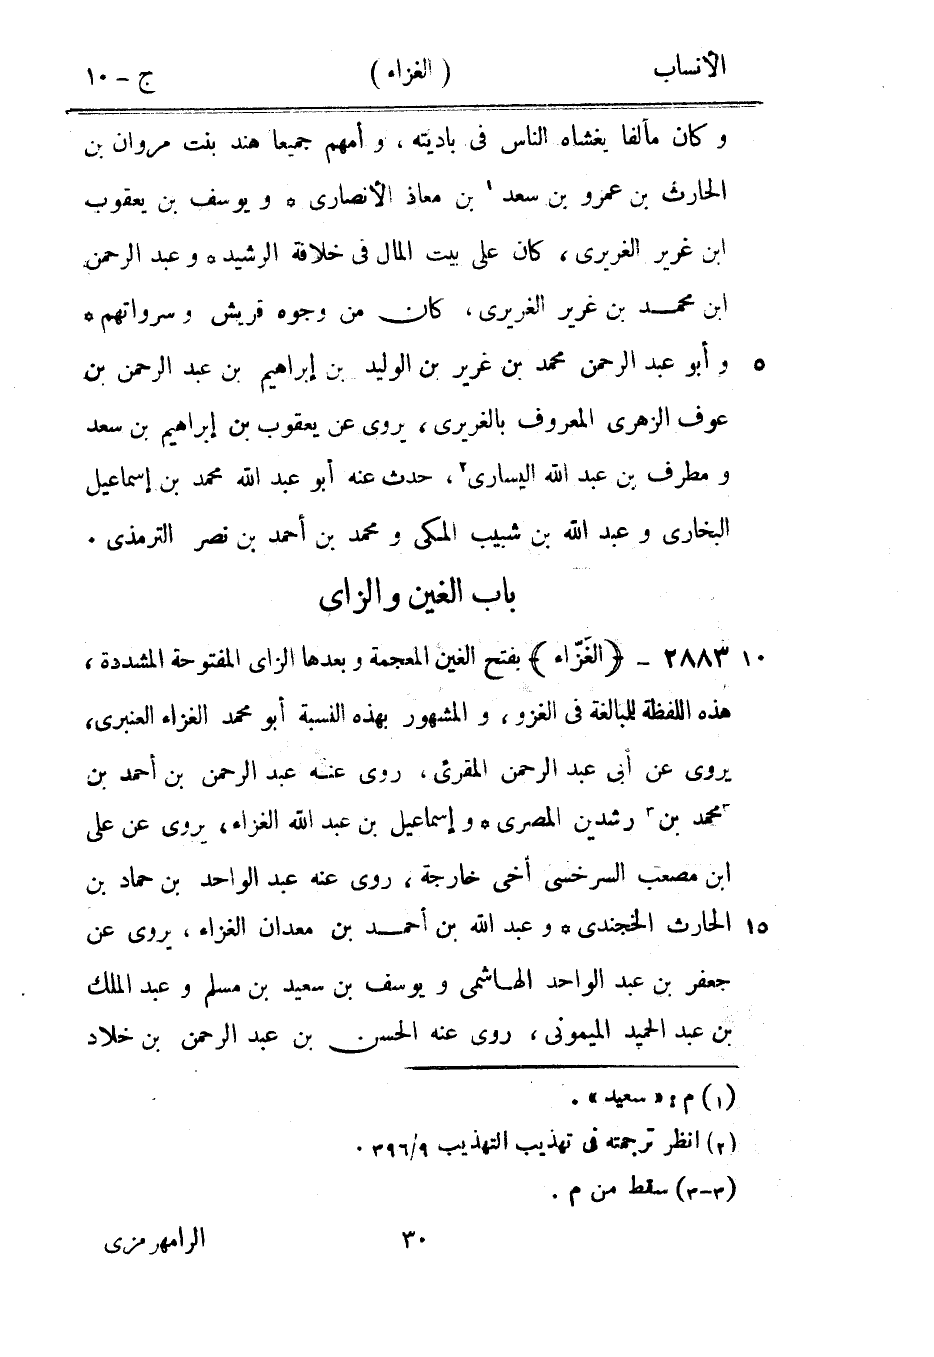 الأنساب ( الغزاء ) ج - ١٠
و كان مألفا يغشاه الناس فى باديته ، و أمهم جميعا هند بنت مروان بن
الحارث بن عمرو بن سعد ١ بن معاذ الأنصارى * و يوسف بن يعقوب
ابن غرير الغريرى ، كان على بيت المال فى خلافة الرشيد * و عبد الرحمن
ابن محمد بن غرير الغريرى ، كان من وجوه قريش و سرواتهم *
٥ و أبو عبد الرحمن محمد بن غرير بن الوليد بن إبراهيم بن عبد الرحمن بن
عوف الزهرى المعروف بالغريرى ، يروى عن يعقوب بن إبراهيم بن سعد
و مطرف بن عبد الله اليسارى ٢ ، حدث عنه أبو عبد الله محمد بن إسماعيل
البخارى و عبد الله بن شبيب المكى و محمد بن أحمد بن نصر الترمذى .
باب الغين والزاى
١٠ ٢٨٨٣ - ﴿ الغَزّاء ﴾ بفتح الغين المعجمة و بعدها الزاى المفتوحة المشددة ،
هذه اللفظة للبالغة فى الغزو ، و المشهور بهذه النسبة أبو محمد الغزاء العنبرى ،
يروى عن أبى عبد الرحمن المقرئ ، روى عنه عبد الرحمن بن أحمد بن
٣ محمد بن ٣ رشدين المصرى * و إسماعيل بن عبد الله الغزاء ، يروى عن على
ابن مصعب السرخسى أخى خارجة ، روى عنه عبد الواحد بن حماد بن
١٥ الحارث الخجندى * و عبد الله بن أحمد بن معدان الغزاء ، يروى عن
جعفر بن عبد الواحد الهاشمى و يوسف بن سعيد بن مسلم و عبد الملك
بن عبد الحميد الميمونى ، روى عنه الحسن بن عبد الرحمن بن خلاد
(١) م : « سعيد » .
(٢) انظر ترجمته فى تهذيب التهذيب ٣٩٦/٩ .
(٣-٣) سقط من م .
٣٠ الرامهرمزى